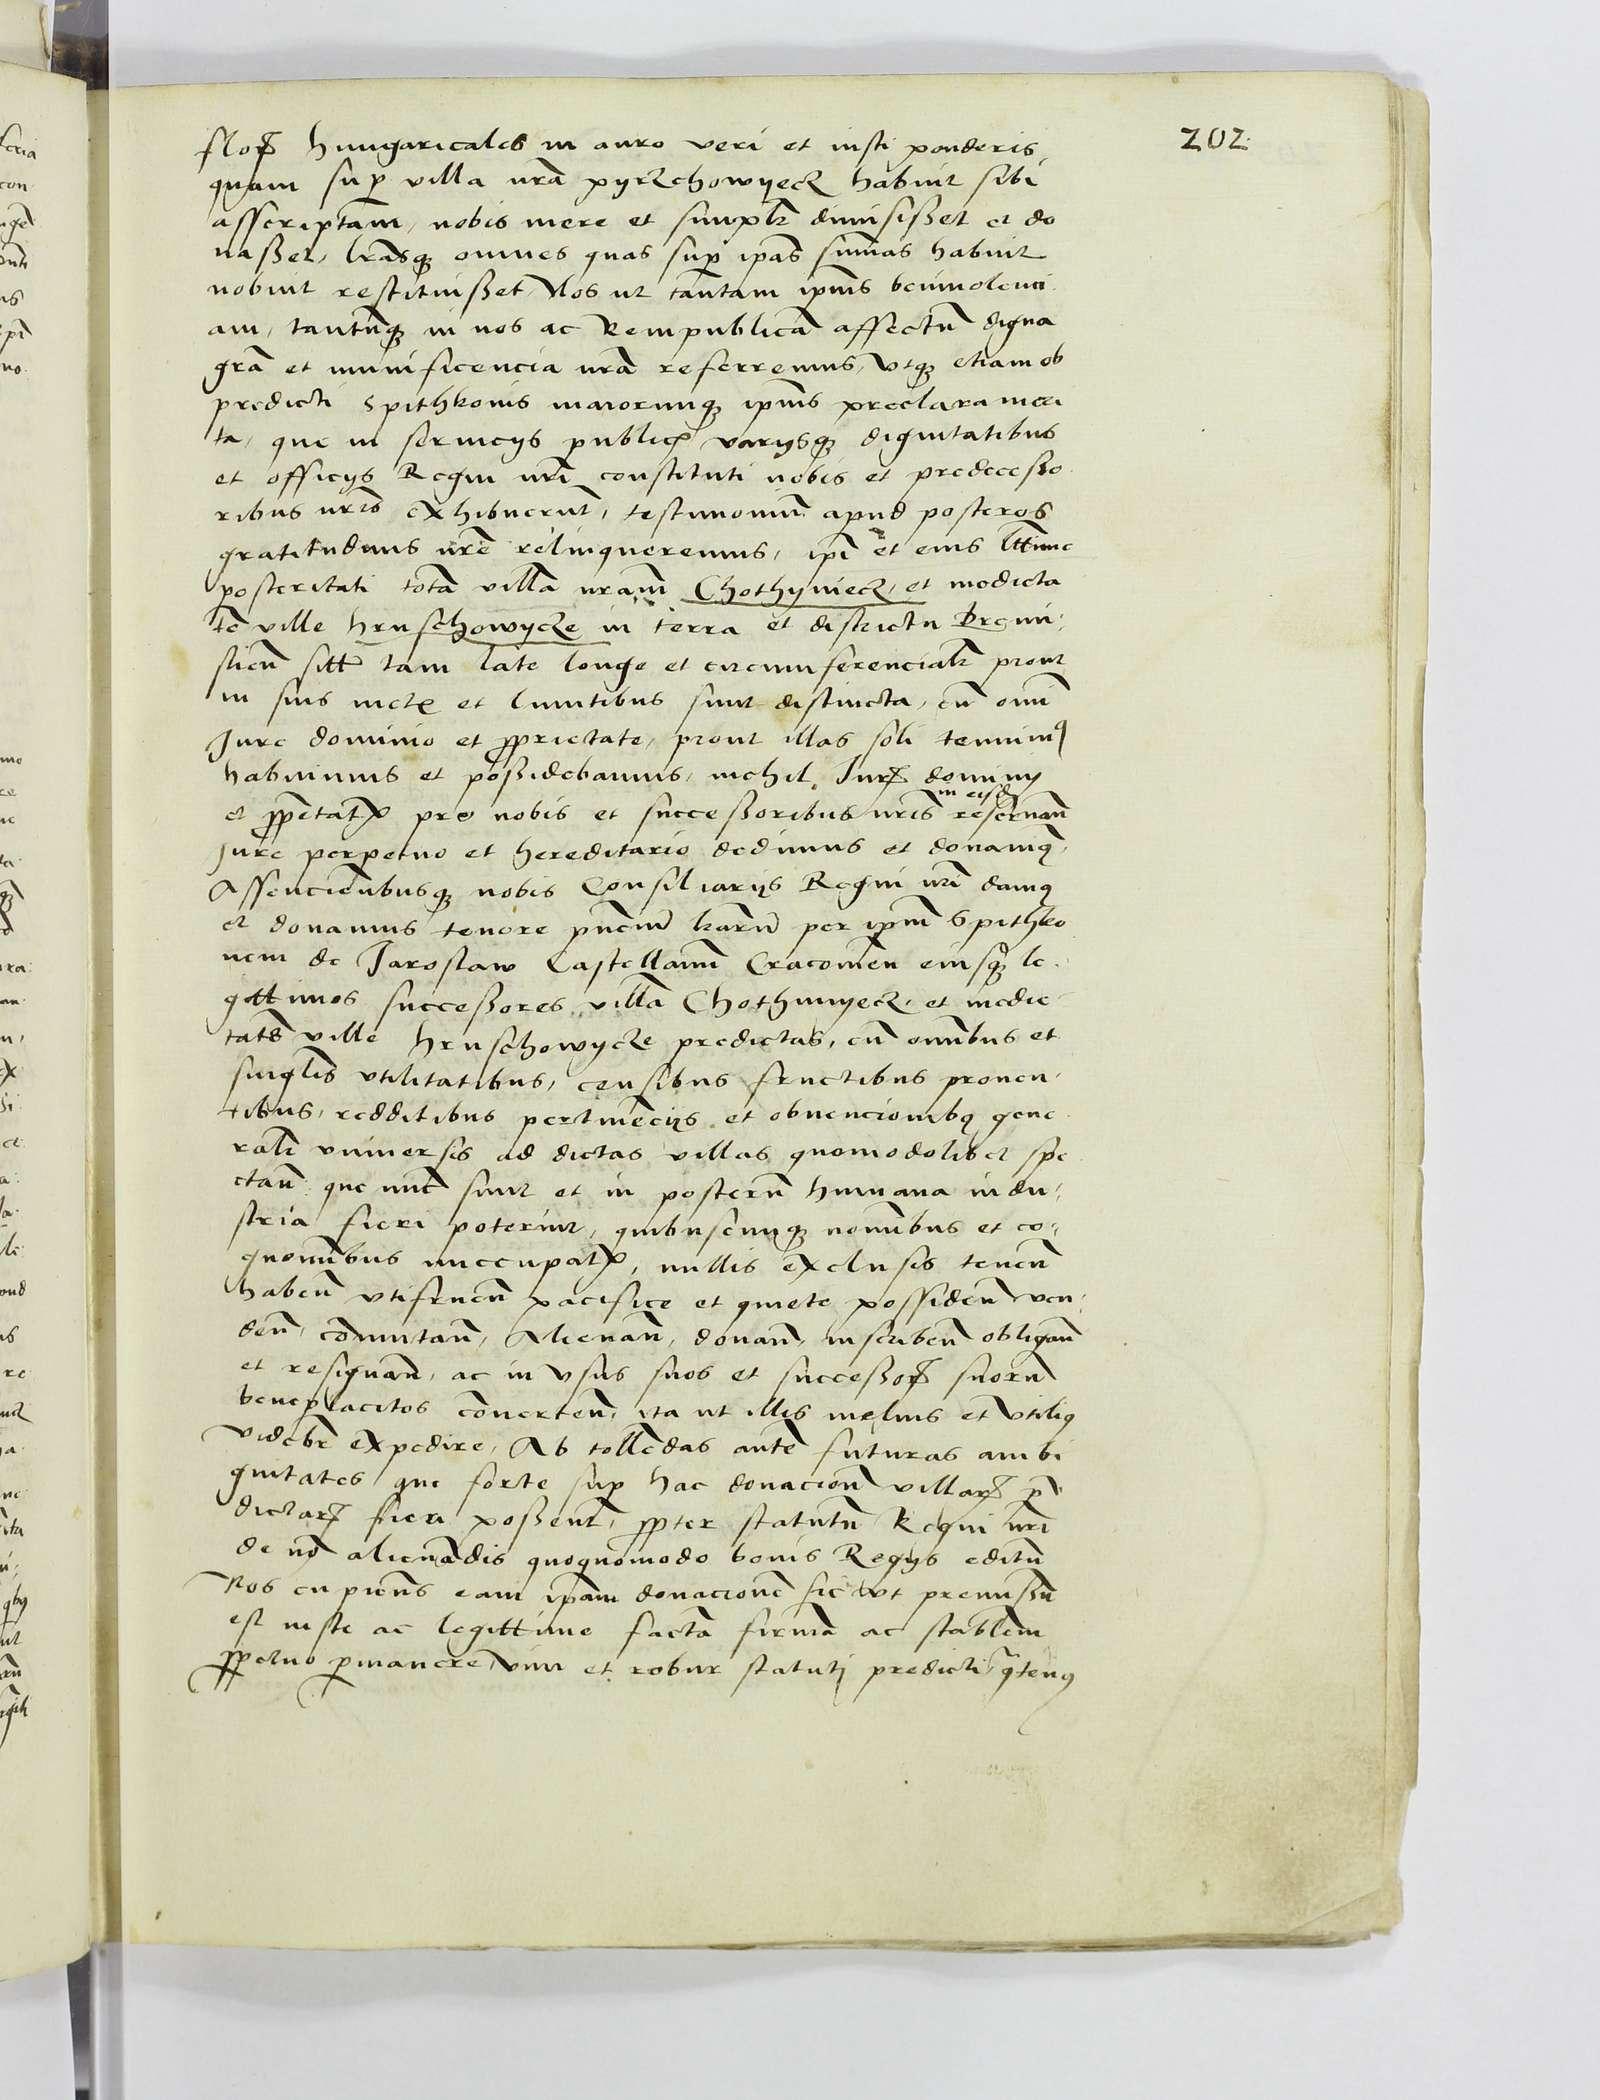 202.
flor hungaricales in auro veri et iusti ponderis
quam sup villa nrã pyrzchowyecz habuit sibi
asscriptam, nobis mere et simplr dimisisset et do
nasset, lrasq omnes quas sup ipas sumas habuit
nobiut restituisset, Nos ut tantam ipius beniuolenci
am, tantuq in nos ac Rempublicã affectũ digna
grã et munificencia nrã referremus, vtq etiam ob
predicti Spithkonis maiorumq ipius preclara meri
ta, que in seruicys public varysq dignitatibus
et officys Regni nri constituti nobis et predecesso
ribus nris exhibuerũt, testimoniũ apud posteros
gratitudinis nrẽ relinqueremus, ipi et eius lttime
posteritati totã villã nram Chothyniecz, et medieta
tẽ ville hruschowycze in terra et districtu Premi
slieñ sitt tam late longe et circumferencialr prout
in suis met et limitibus sunt distincta, cũ omi
Jure dominio et pprietate, prout illas soli tenuimq
habuimus et possidebamus, nichil Jur dominy
et ppetat pro nobis et successoribus nris in eisd reseruañ
Jure perpetuo et hereditario dedimus et donauimq,
Assencientibusq nobis Consiliarys Regni nri damq
et donamus tenore pñciũ lrarũ per ipm Spithko
nem de Jaroslaw Castellanũ Cracouieñ eiusq le
gittimos successores villã Chothinyecz, et medie
tatẽ ville hruschowycze predictas, cũ omibus et
singlis vtilitatibus, censibus fructibus prouen
tibus, redditibus pertinẽcys et obuencionibq gene
ralr vniuersis ad dictas villas quomodolibet spe
ctañ que nũc sunt et in posterũ humana indu
stria fieri poterint, quibuscumq nomibus et co
gnomibus nuccupat, nullis exclusis teneñ
habeñ vtifrueñ pacifice et quiete possideñ ven
deñ, comutañ, Alienañ, donañ, inscribeñ obligañ
et resignañ, ac in vsus suos et successor suorũ
beneplacitos cõuerteñ, ita ut illis melius et vtiliq
videbr expedire, Ab tollẽdas autẽ futuras ambi
guitates que forte sup hac donacionẽ villar p
dictar fieri possent, ppter statutũ Regni nri
de nõ alienãdis quoquomodo bonis Regys editũ
Nos cupiens eam ipam donacionẽ sic ut premissũ
est iuste ac legittime factã firmã ac stabilem
ppetuo pmanere, vim et robur statuti predicti qtenq